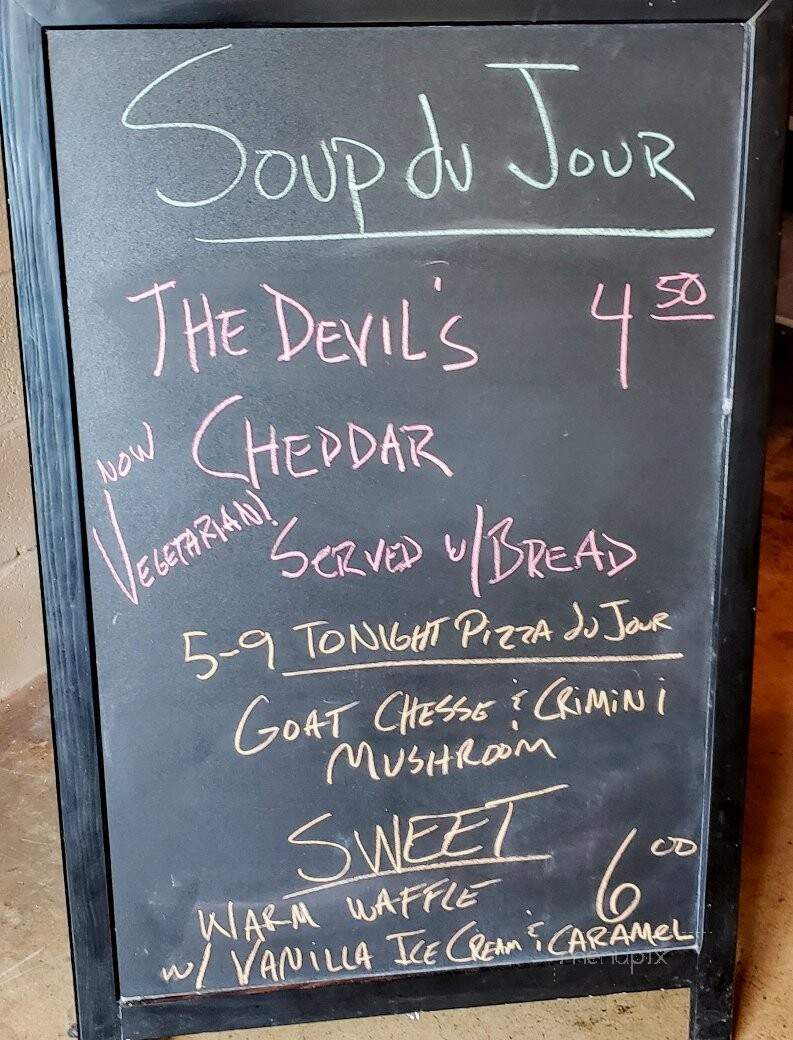 SOUP du JOUR
THE DEVIL'S 4 50
CHEDDAR
NOW
VEGETARIAN!
SERVED w/BREAD
5-9 TONIGHT PIZZA du JOUR
GOAT CHESSE & CRIMINI
MUSHROOM
SWEET
WARM WAFFLE 6 00
w/ VANILLA ICE CREAM & CARAMEL
menupix